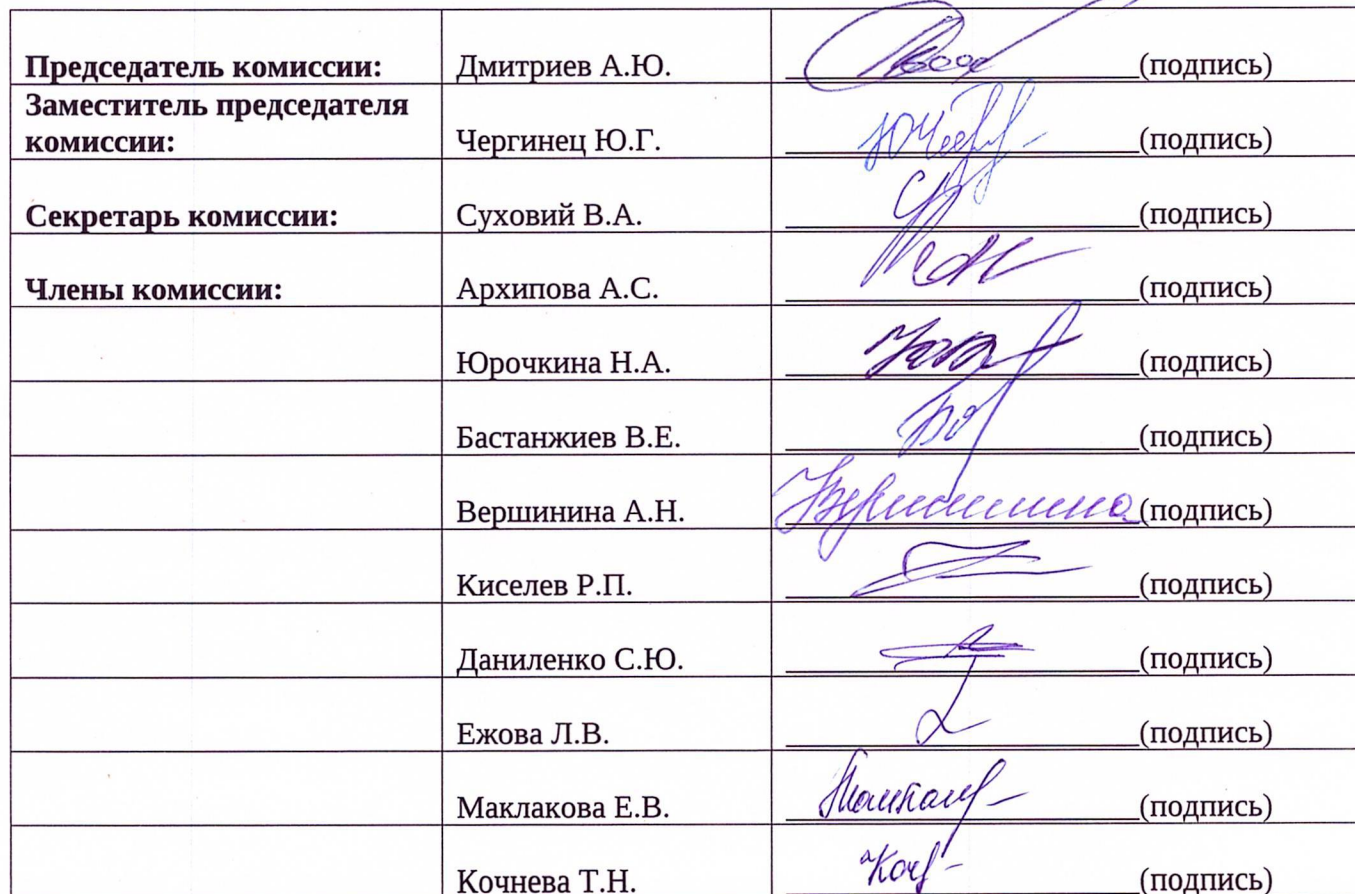 Председатель комиссии: Дмитриев А.Ю. (подпись)
Заместитель председателя
комиссии: Чергинец Ю.Г. (подпись)
Секретарь комиссии: Суховий В.А. (подпись)
Члены комиссии: Архипова А.С. (подпись)
Юрочкина Н.А. (подпись)
Бастанжиев В.Е. (подпись)
Вершинина А.Н. Вершинина (подпись)
Киселев Р.П. (подпись)
Даниленко С.Ю. (подпись)
Ежова Л.В. (подпись)
Маклакова Е.В. (подпись)
Кочнева Т.Н. (подпись)